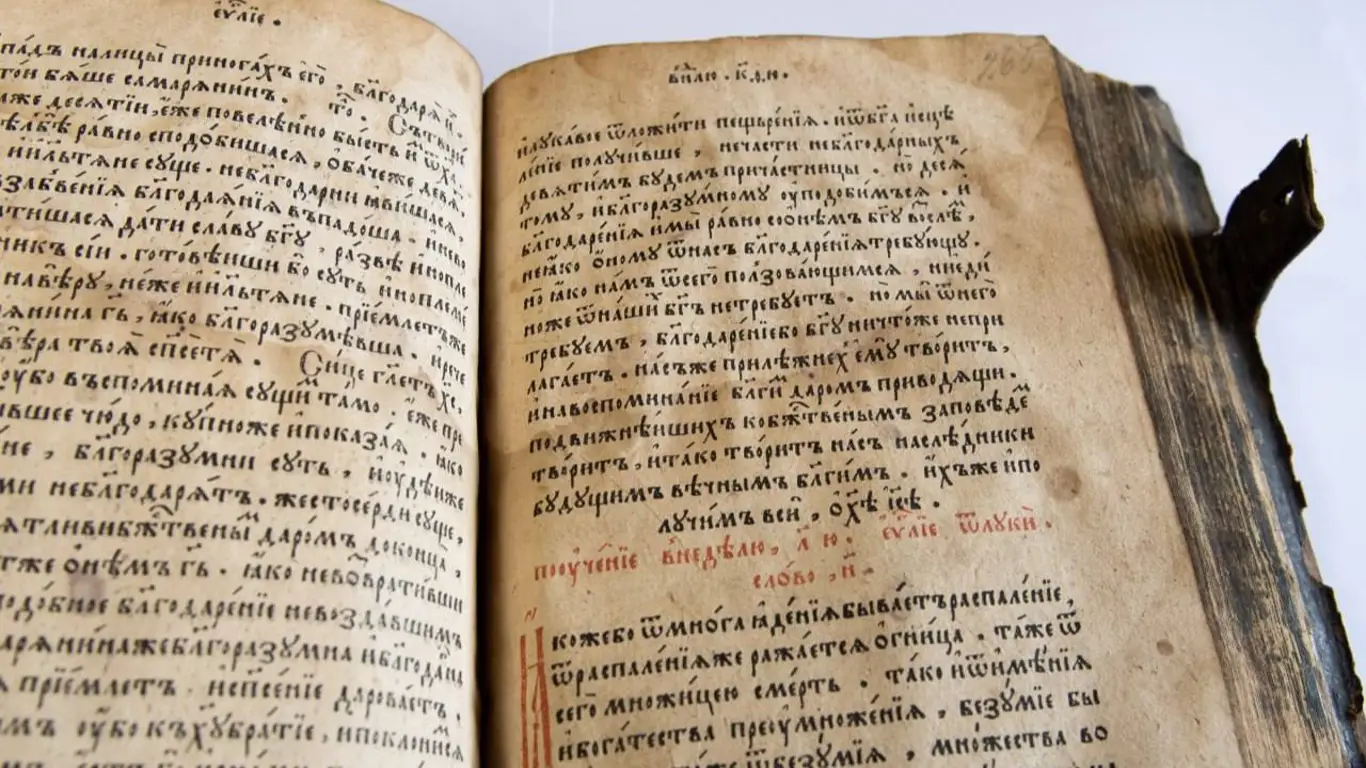 еѵⷢ҇лїе .
па́дъ налицы̀ приногах̑ъ е҆го̀ , бл҃годаря̀ и҆̀ .
то́и бя́ше самаряни́н . то҃ . Сътвори
же десяти́и , е҆́же повеле́но бы́сть
ра́вно сподо́бишася , ѻ҆ба́чеже де́вя
и҆и҃льтя́не су́ще . небл҃года́рни ꙗ҆ви́шася ,
забве́нїя бл҃года́нїя въпадо́ша . и҆нево
ти́шася да́ти сла́ву бг҃у , ра́звѣ и҆нопле
никъ сі́и . гото́вѣиши бо су́ть и҆ноплеме
навѣ́ру , не́же и҆и҃льтяне . прїе́млетъже
ря́нина гь҃ , ꙗ҆́ко бл҃горазумѣ́вша . и҆рече
вѣ́ра твоя̀ сп҃се́тя̀ . Си́це гл҃етъ хс҃ ,
ѹ҆́бо въспомина́я су́щи тамо . е҆́же пре
вшее чю́до , ку́пноже и҆показа́я . ꙗ҆́ко
не , бл҃горазу́мни су́ть , и҆ѹ҆дѣ́иже
ми небл҃годаря́тъ . жестосе́рди су́ще ,
я́тливи бж҃твены̑м даро́мъ доконца̀ ,
тже ѻ҆́нѣмъ гь҃ . ꙗ҆́ко невозврати́вши
подо́бное бл҃годаре́нїе невозда́вшимъ
аряни́нажебл҃горазу́мна и҆бл҃года́рна
прїе́млетъ . и҆сп҃се́нїе дарова́етъ .
мъ ѹ҆́бо къхѹ҃ бра́тїе , и҆поклони́мся
внⷣлю . к҃ѳ ю .
265
и҆лука́вое ѿложи́ти пещьре́нїя . и҆ѿбг҃а и҆сцѣ
ле́нїе получи́вше , неча́сти небл҃года́рныхъ
девяти́мъ бу́демъ прича́стницы . но̀ деся́
тому , и҆бл҃горазу́мному ѹ҆подо́бимъся . и҆
бл҃годаре́нїя и҆мы̀ ра́вно соѻ҆нѣ́мъ бг҃у во́слѣм ,
неꙗ҆́ко ѻ҆́ному ѿна́съ бл҃годаре́нїя тре́бующу .
но̀ ꙗ҆́ко на́мъ ѿсего̀ по́лзовающимся , ни е҆ди
ноже ѿна́ши бг҃ъ нетре́буетъ . но̀ мы̀ ѿнего̀
тре́буемъ , бл҃годаре́нїебо бг҃у ничто́же непри
лага́етъ . на́съже прилѣ́жнех̑ е҆му̀ твори́тъ ,
и҆навоспомина́нїе бл҃ги́м даро́мъ приводя́щи .
подви́жнѣишихъ кобжⷭ҇тве́нымъ за́повѣдем
твори́тъ , и҆та́ко твори́тъ на́съ наслѣ́дники
бу́дущимъ вѣ́чнымъ бл҃ги́мъ . и҆́хъже и҆по
лучи́мъ всѝ , ѻ҆хѣ҃ і҆сѣ҃ .
поѹ҆че́нїе внедѣ́лю , л҃ ю . еѵⷢ҇лїе ѿлукѝ .
сло́во , н҃ .
Ꙗ҆́кожебо ѿмно́га ꙗ҆де́нїя быва́етъ распале́нїе ,
ѿраспале́нїя же ража́ется ѻ҆гни́ца . та́же ѿ
сего̀ мно́жицею сме́рть . та́ко и҆ѿи҆мѣ́нїя
и҆бога́тества преѹ҆множе́нїя , безу́мїе бы
ва́етъ ѿбезу́мїя , мно́жества во